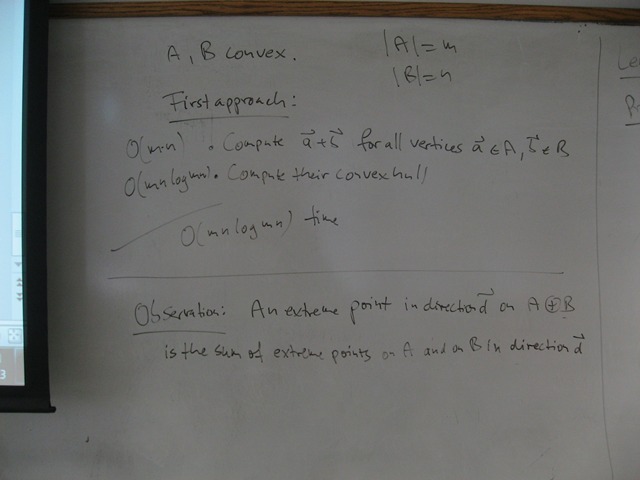 A, B convex. |A| = m
|B| = n
First approach:
O(m·n) • Compute a⃗+b⃗ for all vertices a⃗ ∈ A, b⃗ ∈ B
O(mn log mn) • Compute their convex hull
O(mn log mn) time
Observation: An extreme point in direction d⃗ on A ⊕ B
is the sum of extreme points on A and on B in direction d⃗
Le
3